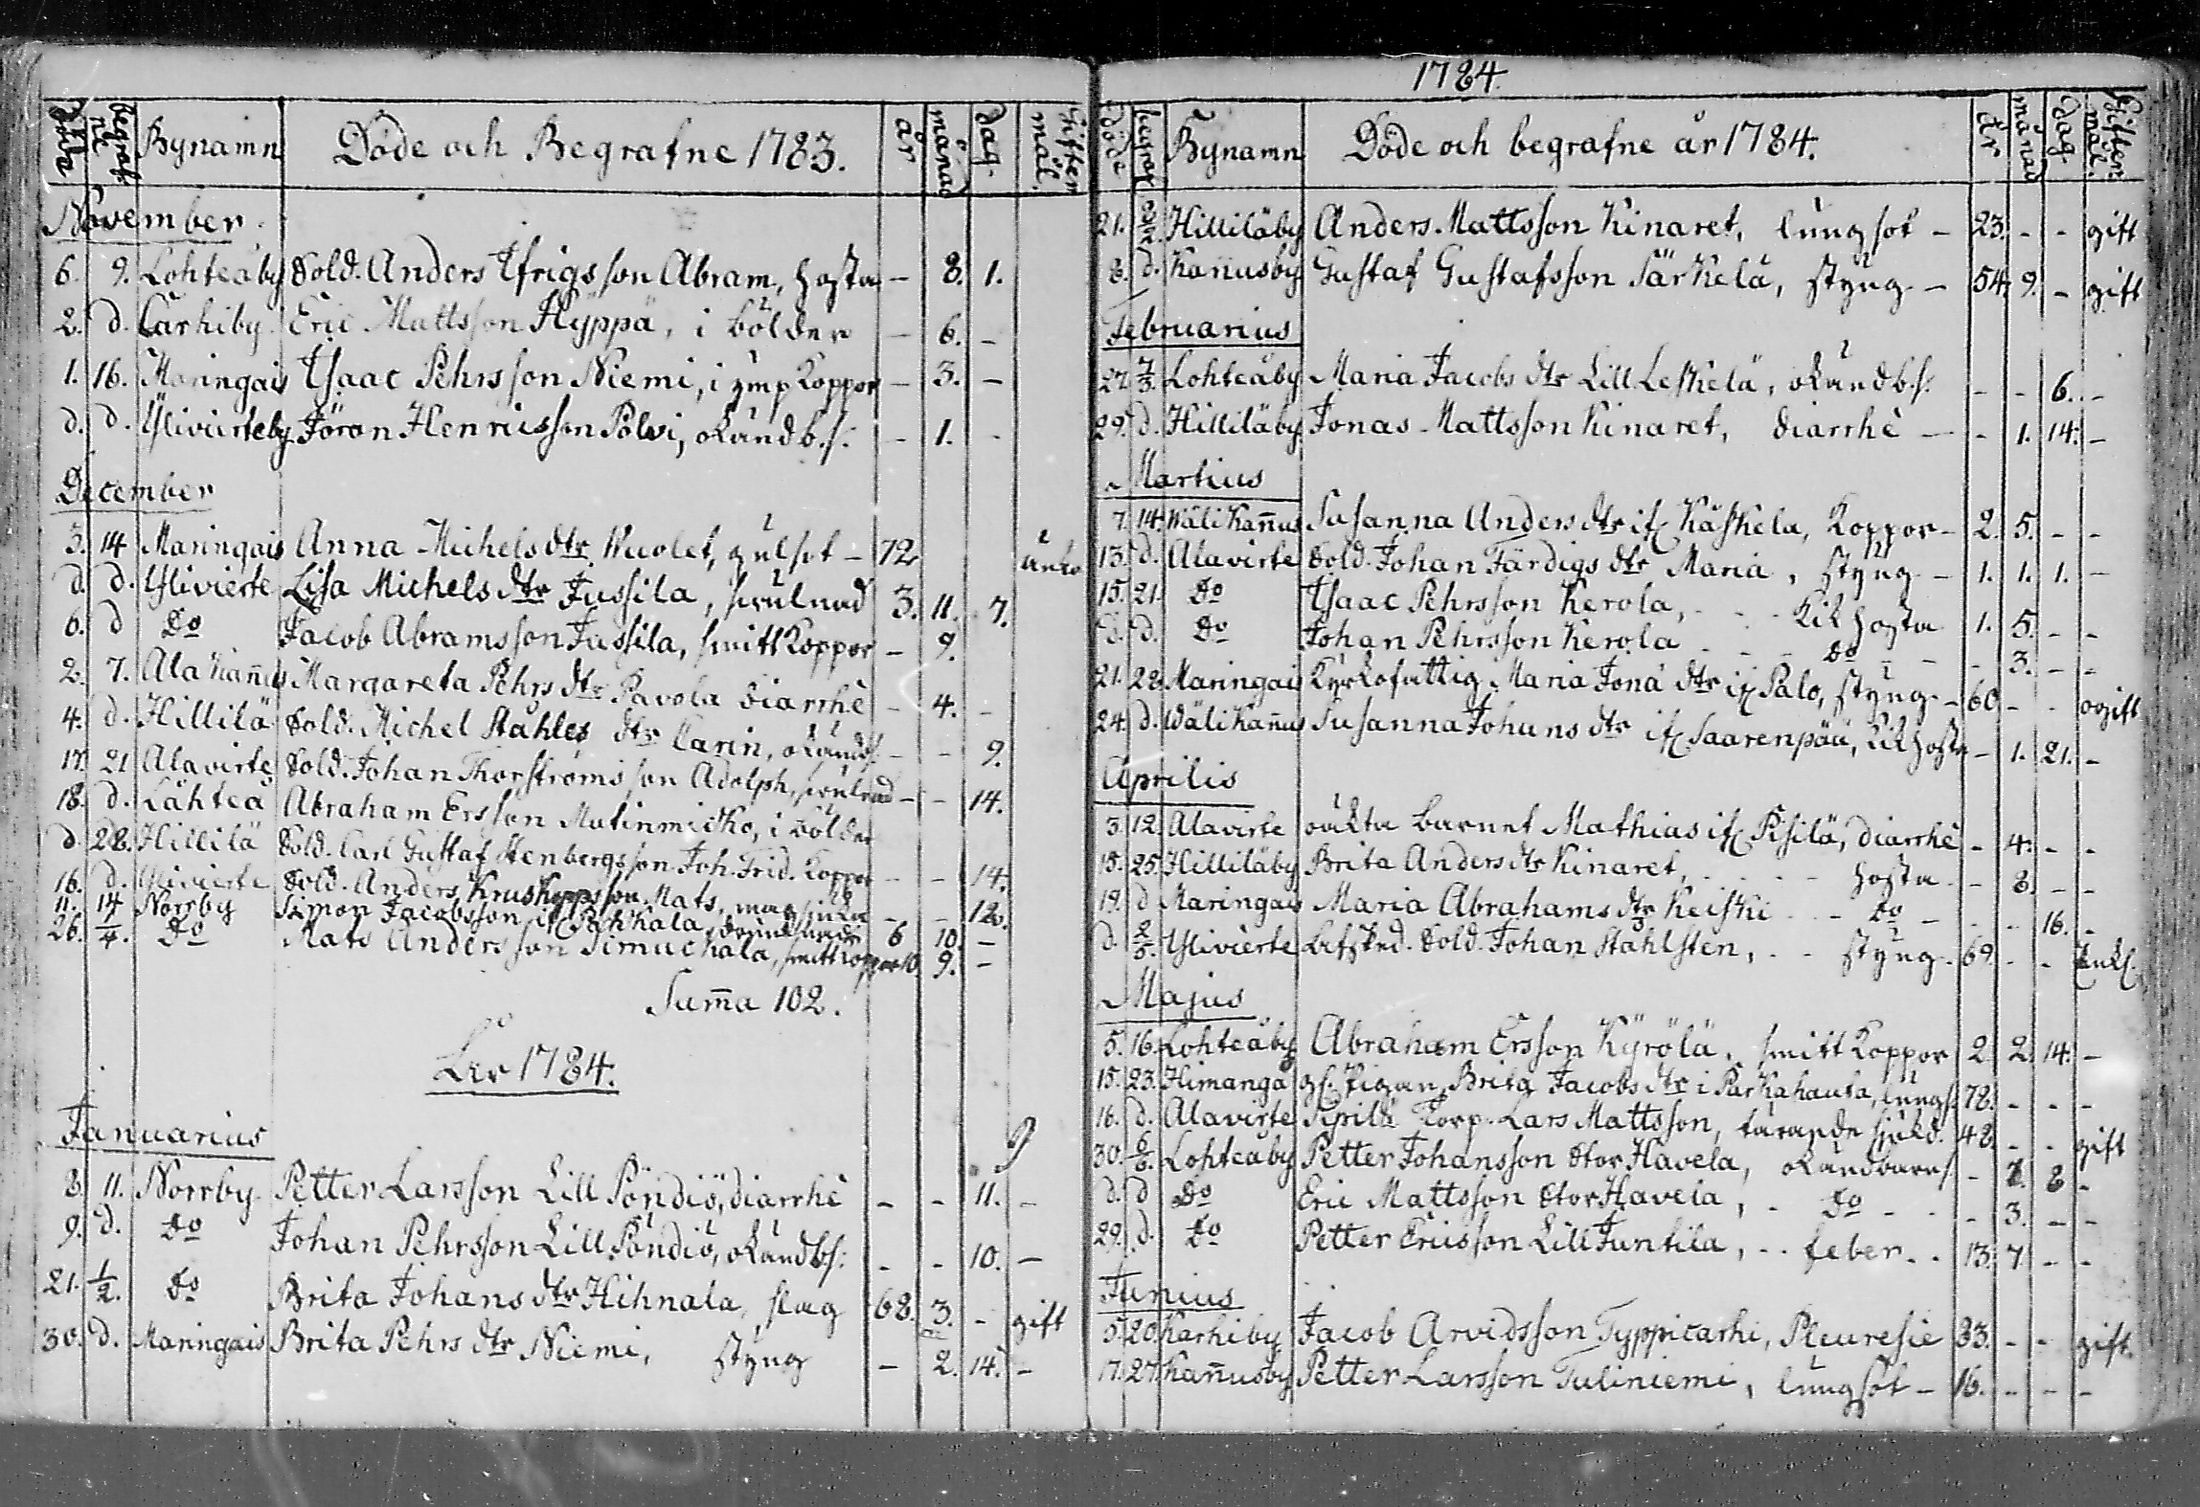 döda begrafne Bynamn Döde och Begrafne 1783. år månad dag. Giftermål.
November
6. 9. Lohteåby Sold. Anders Ifrigs son Abram, hosta - 8. 1.
2. d. Carhiby. Eric Mattsson Hyppä, i bölder - 6. -
1. 16. Maringais Isaac Pehrsson Niemi, i ymp koppor - 3. -
d. d. Ylivirteby Jöran Henricsson Polvi, okändb.s: - 1. -
December
3. 14 Maringais Anna Michels dtr Wuolet, gulsot - 72 änka
d. d. Ylivierte Lisa Michels dtr Jussila, svulnad 3. 11. 7.
6. d Do Jacob Abramsson Jussila, smittkoppor - 9.
2. 7. Ala Kañus Margareta Pehrs dtr Pavola diarrhè - 4. -
4. d. Hillilä Sold. Michel Ståhles dtr Carin, okänds: - - 9.
17. 21 Alavirte Sold. Johan Thorströms son Adolph, svulnad - - 14.
18. d. Lähteå Abraham Ersson Matinmicko, i bölder
d. 28. Hillilä Sold. Carl Gustaf Stenbergs son Joh. Frid. koppor - - 14.
16. d. Ylivierte Sold. Anders Kruskopps son Mats, - - 12.
11. 14 Norrby Simon Jacobsson if Pehkala, 6 10. -
26. 1/4. Do Mats Andersson Simuchala, smittkoppor 10 9. -
Sum̃a 102.
År 1784.
Januarius
8. 11. Norrby. Petter Larsson Lill Pöndiö, diarrhè - - 11. -
9. d. Do Johan Pehrsson Lill Pöndiö, okändbs: - - 10. -
21. 1/2. Do Brita Johans dtr Hihnala, slag 68. 3. - gift
30. d. Maringais Brita Pehrs dtr Niemi, styng - 2. 14. -
1784.
döde begraf Bynamn Döde och begrafne år 1784. år månad dag. Giftermål.
21. 2/2. Hilliläby Anders Mattsson Kinaret, lungsot - 23. - - gift
8. d. Kañusby Gustaf Gustafsson Särkelä, styng - 54. 9. - gift
Februarius
27. 7/3. Lohteåby Maria Jacobs dtr Lill Leskelä, okändb.s: - - 6. -
29. d. Hilliläby Jonas Mattsson Kinaret, diarrhè - - 1. 14. -
Martius
7. 14. Wälikañus Susanna Anders dtr if Käskela, koppor - 2. 5. - -
13. d. Alavirte Sold. Johan Färdigs dtr Maria, styng - 1. 1. 1. -
15. 21. Do Isaac Pehrsson Kerola, - - - kikhosta 1. 5. - -
d. d. Do Johan Pehrsson Kerola - - - Do - - - 3. - -
21. 28. Maringais Kyrkofattig Maria Jona dtr if Palo, styng - 60 - - ogift
24. d. Wälikañus Susanna Johans dtr if Saarenpää, kikhosta - 1. 21. -
Aprilis
3. 12. Alavirte oäkta barnet Mathias if Pisilä, diarrhè - 4. - -
15. 25. Hilliläby Brita Anders dtr Kinaret, - - - hosta - - 8. - -
19. d Maringais Maria Abrahams dtr Keiski - - Do - - - 16. -
d. 2/5. Ylivierte Afsked. Sold. Johan Stahlsten, - - styng. 69. - - Enkl.
Majus
5. 16. Lohteåby Abraham Ersson Kyrölä, smittkoppor 2. 2 14. -
15. 23. Himanga gl. Pigan Brita Jacobs dtr i Parkahauta, lungs. 78. - - -
16. d. Alavirte Korp. Lars Mattsson, tärande sjukd. 48. - - gift
30. 6/6. Lohteåby Petter Johansson Stor Havela, okändbarns - 8 -
d. d Do Eric Mattsson Stor Havela, - Do - - - 3. - -
29. d. Do Petter Ericsson Lill Juntila, - - feber. - 13. 7. - -
Junius
5. 20. Karhiby. Jacob Arvidsson Typpicarhi, Pleuresie 33. - - gift.
17. 27. Kañusby Petter Larsson Tuliniemi, lungsot - 16. - - -